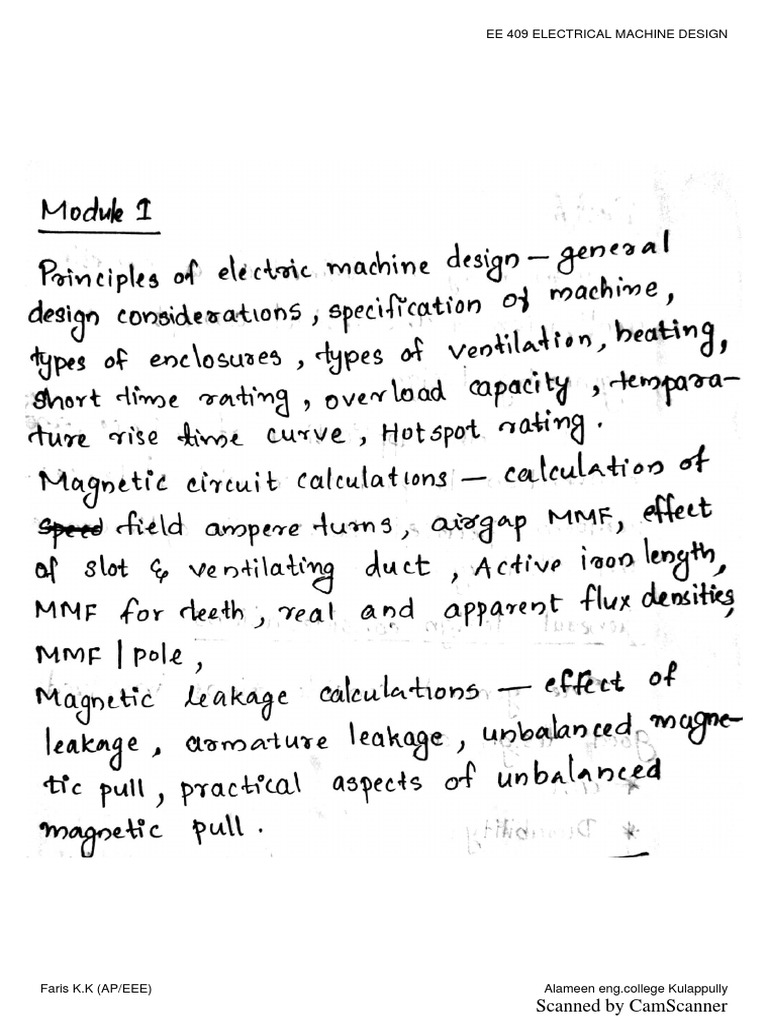 EE 409 ELECTRICAL MACHINE DESIGN
Module 1
Principles of electric machine design – general
design considerations, specification of machine,
types of enclosures, types of ventilation, heating,
short time rating, overload capacity, tempara-
ture rise time curve, Hotspot rating.
Magnetic circuit calculations – calculation of
speed field ampere turns, airgap MMF, effect
of slot & ventilating duct, Active iron length,
MMF for teeth, real and apparent flux densities,
MMF | pole,
Magnetic leakage calculations – effect of
leakage, armature leakage, unbalanced magne-
tic pull, practical aspects of unbalanced
magnetic pull.
Faris K.K (AP/EEE)
Alameen eng.college Kulappully
Scanned by CamScanner